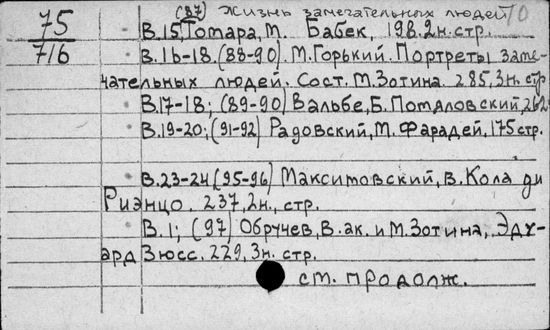 75
716
(87) Жизнь замечательных людей 70
В.15, Томара, М. Бабек, 198.2н.стр.
В.16-18.(88-90) М.Горький. Портреты заме-
чательных людей. Сост. М.Зотина. 285,3н.стр
В.17-18; (89-90) Вальбе, Б. Помяловский, 262
В.19-20; (91-92) Радовский, М. Фарадей, 175 стр.
В.23-24 (95-96) Максимовский, В. Кола ди
Риэнцо. 237,2н., стр.
В.1; (97) Обручев, В. ак. и М.Зотина, Эду-
ард Зюсс. 229,3н. стр.
ст. продолж.